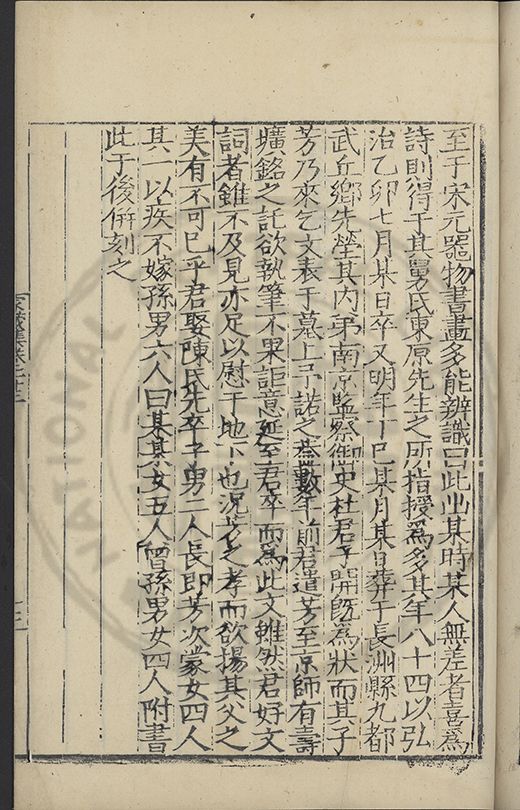 至于宋元器物書畫多能辨識曰此出某時某人無差者喜爲
詩則得于其舅氏東原先生之所指授爲多其年八十四以弘
治乙卯七月某日卒又明年丁巳某月某日葬于長洲縣九都
武丘鄉先塋其内弟南京監察御史杜君子開既爲狀而其子
芳乃來乞文表于墓上予諾之葢數年前君遣芳至京師有壽
壙銘之託欲執筆不果詎意延至君卒而爲此文雖然君好文
詞者錐不及見亦足以慰于地下也況芳之孝而欲揚其父之
美有不可已乎君娶陳氏先卒子男二人長即芳次蒙女四人
其一以疾不嫁孫男六人曰某某女五人曾孫男女四人附書
此于後俾刻之
NATIONAL